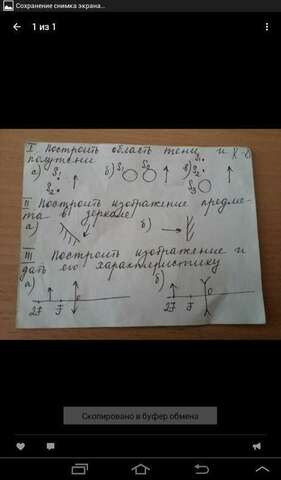 Сохранение снимка экрана...
1 из 1
I Построить область тени и
полутени
а) S₁ б) S₁ S₂ в) S₁
S₂ S₂
S₃
II Построить изображение предме-
та в зеркале
а) б)
III Построить изображение и
дать его характеристику
а) б)
2F F O 2F F O
Скопировано в буфер обмена